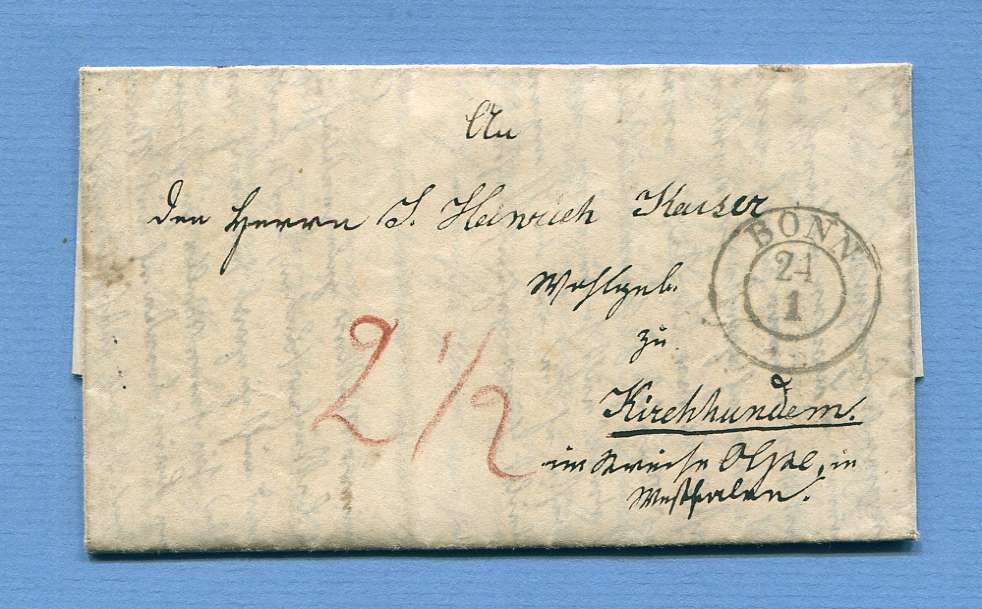 An
den Herrn J. Heinrich Kaiser
Wohlgeb.
zu
Kirchhundem.
im Kreise Olpe, in
Westfalen.
2 1/2
BONN
24
1